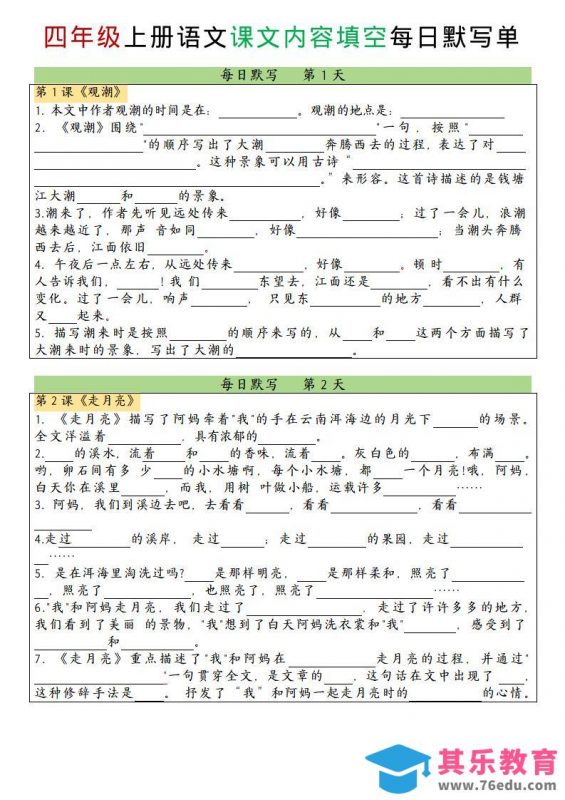 四年级上册语文课文内容填空每日默写单
每日默写 第1天
第1课《观潮》
1. 本文中作者观潮的时间是在：______________。观潮的地点是：______________
2. 《观潮》围绕"______________________________"一句，按照"______
______________"的顺序写出了大潮________奔腾西去的过程，表达了对______
____________________。这种景象可以用古诗"______________________
____________________________________。"来形容。这首诗描述的是钱塘
江大潮______和______的景象。
3.潮来了，作者先听见远处传来__________，好像________；过了一会儿，浪潮
越来越近了，那声 音如同________，好像______________；当潮头奔腾
西去后，江面依旧________。
4. 午夜后一点左右，从远处传来__________，好像________。顿 时______，有
人告诉我们，______！我 们________东望去，江面还是________，看不出有什么
变化。过了一会儿，响声________， 只见东__________的地方________，人群
又____起来。
5. 描写潮来时是按照________的顺序来写的，从____和____这两个方面描写了
大潮来时的景象，写出了大潮的________________。
每日默写 第2天
第2课《走月亮》
1. 《走月亮》描写了阿妈牵着"我"的手在云南洱海边的月光下______的场景。
全文洋溢着__________，具有浓郁的________。
2.____的溪水，流着____和____的香味，流着____。灰白色的________，布满____。
哟，卵石间有多 少____的小水塘啊，每个小水塘，都____一个月亮！哦，阿妈，
白天你在溪里________，而我，用树 叶做小船，运载许多__________······
3. 阿妈，我们到溪边去吧，去看看________，看看____________，看看__________
____________
4.走过__________的溪岸， 走过________；走过________的果园，走过______
______······
5. 是在洱海里淘洗过吗？____是那样明亮，____是那样柔和，照亮了__________
____，照亮了____________，也照亮了，照亮了______________······
6."我"和阿妈走月亮，我们走过了________________，走过了许许多多的地方，
我们看到了美丽 的景物，"我"想到了白天阿妈洗衣裳和"我"________，感受到了
__________和__________。
7. 《走月亮》重点描述了"我"和阿妈在____________走月亮的过程，并通过"
__________________"一句贯穿全文，是文章的____，这句话在文中出现了____，
这种修辞手法是____。 抒发了"我"和阿妈一起走月亮时的__________的心情。
其乐教育
www.76edu.com